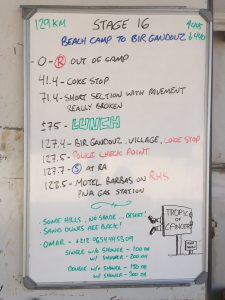 129KM
STAGE 16
BEACH CAMP TO BIR GANDOUZ
0 - R OUT OF CAMP
41.4 - COKE STOP
71.4 - SHORT SECTION WITH PAVEMENT
REALLY BROKEN
≤75 - LUNCH
127.4 - BIR GANDOUZ VILLAGE, COKE STOP
127.5 - POLICE CHECK POINT
127.7 - S AT RA
128.5 - MOTEL BARBAS ON RHS
GAS STATION
SOME HILLS, NO SHADE... DESERT!
SAND DUNES ARE BACK!
OMAR -
SINGLE W/O SHOWER - 100 DH
W/ SHOWER - 200 DH
DOUBLE W/O SHOWER - 150 DH
W/ SHOWER - 300 DH
TROPIC
OF
CANCER